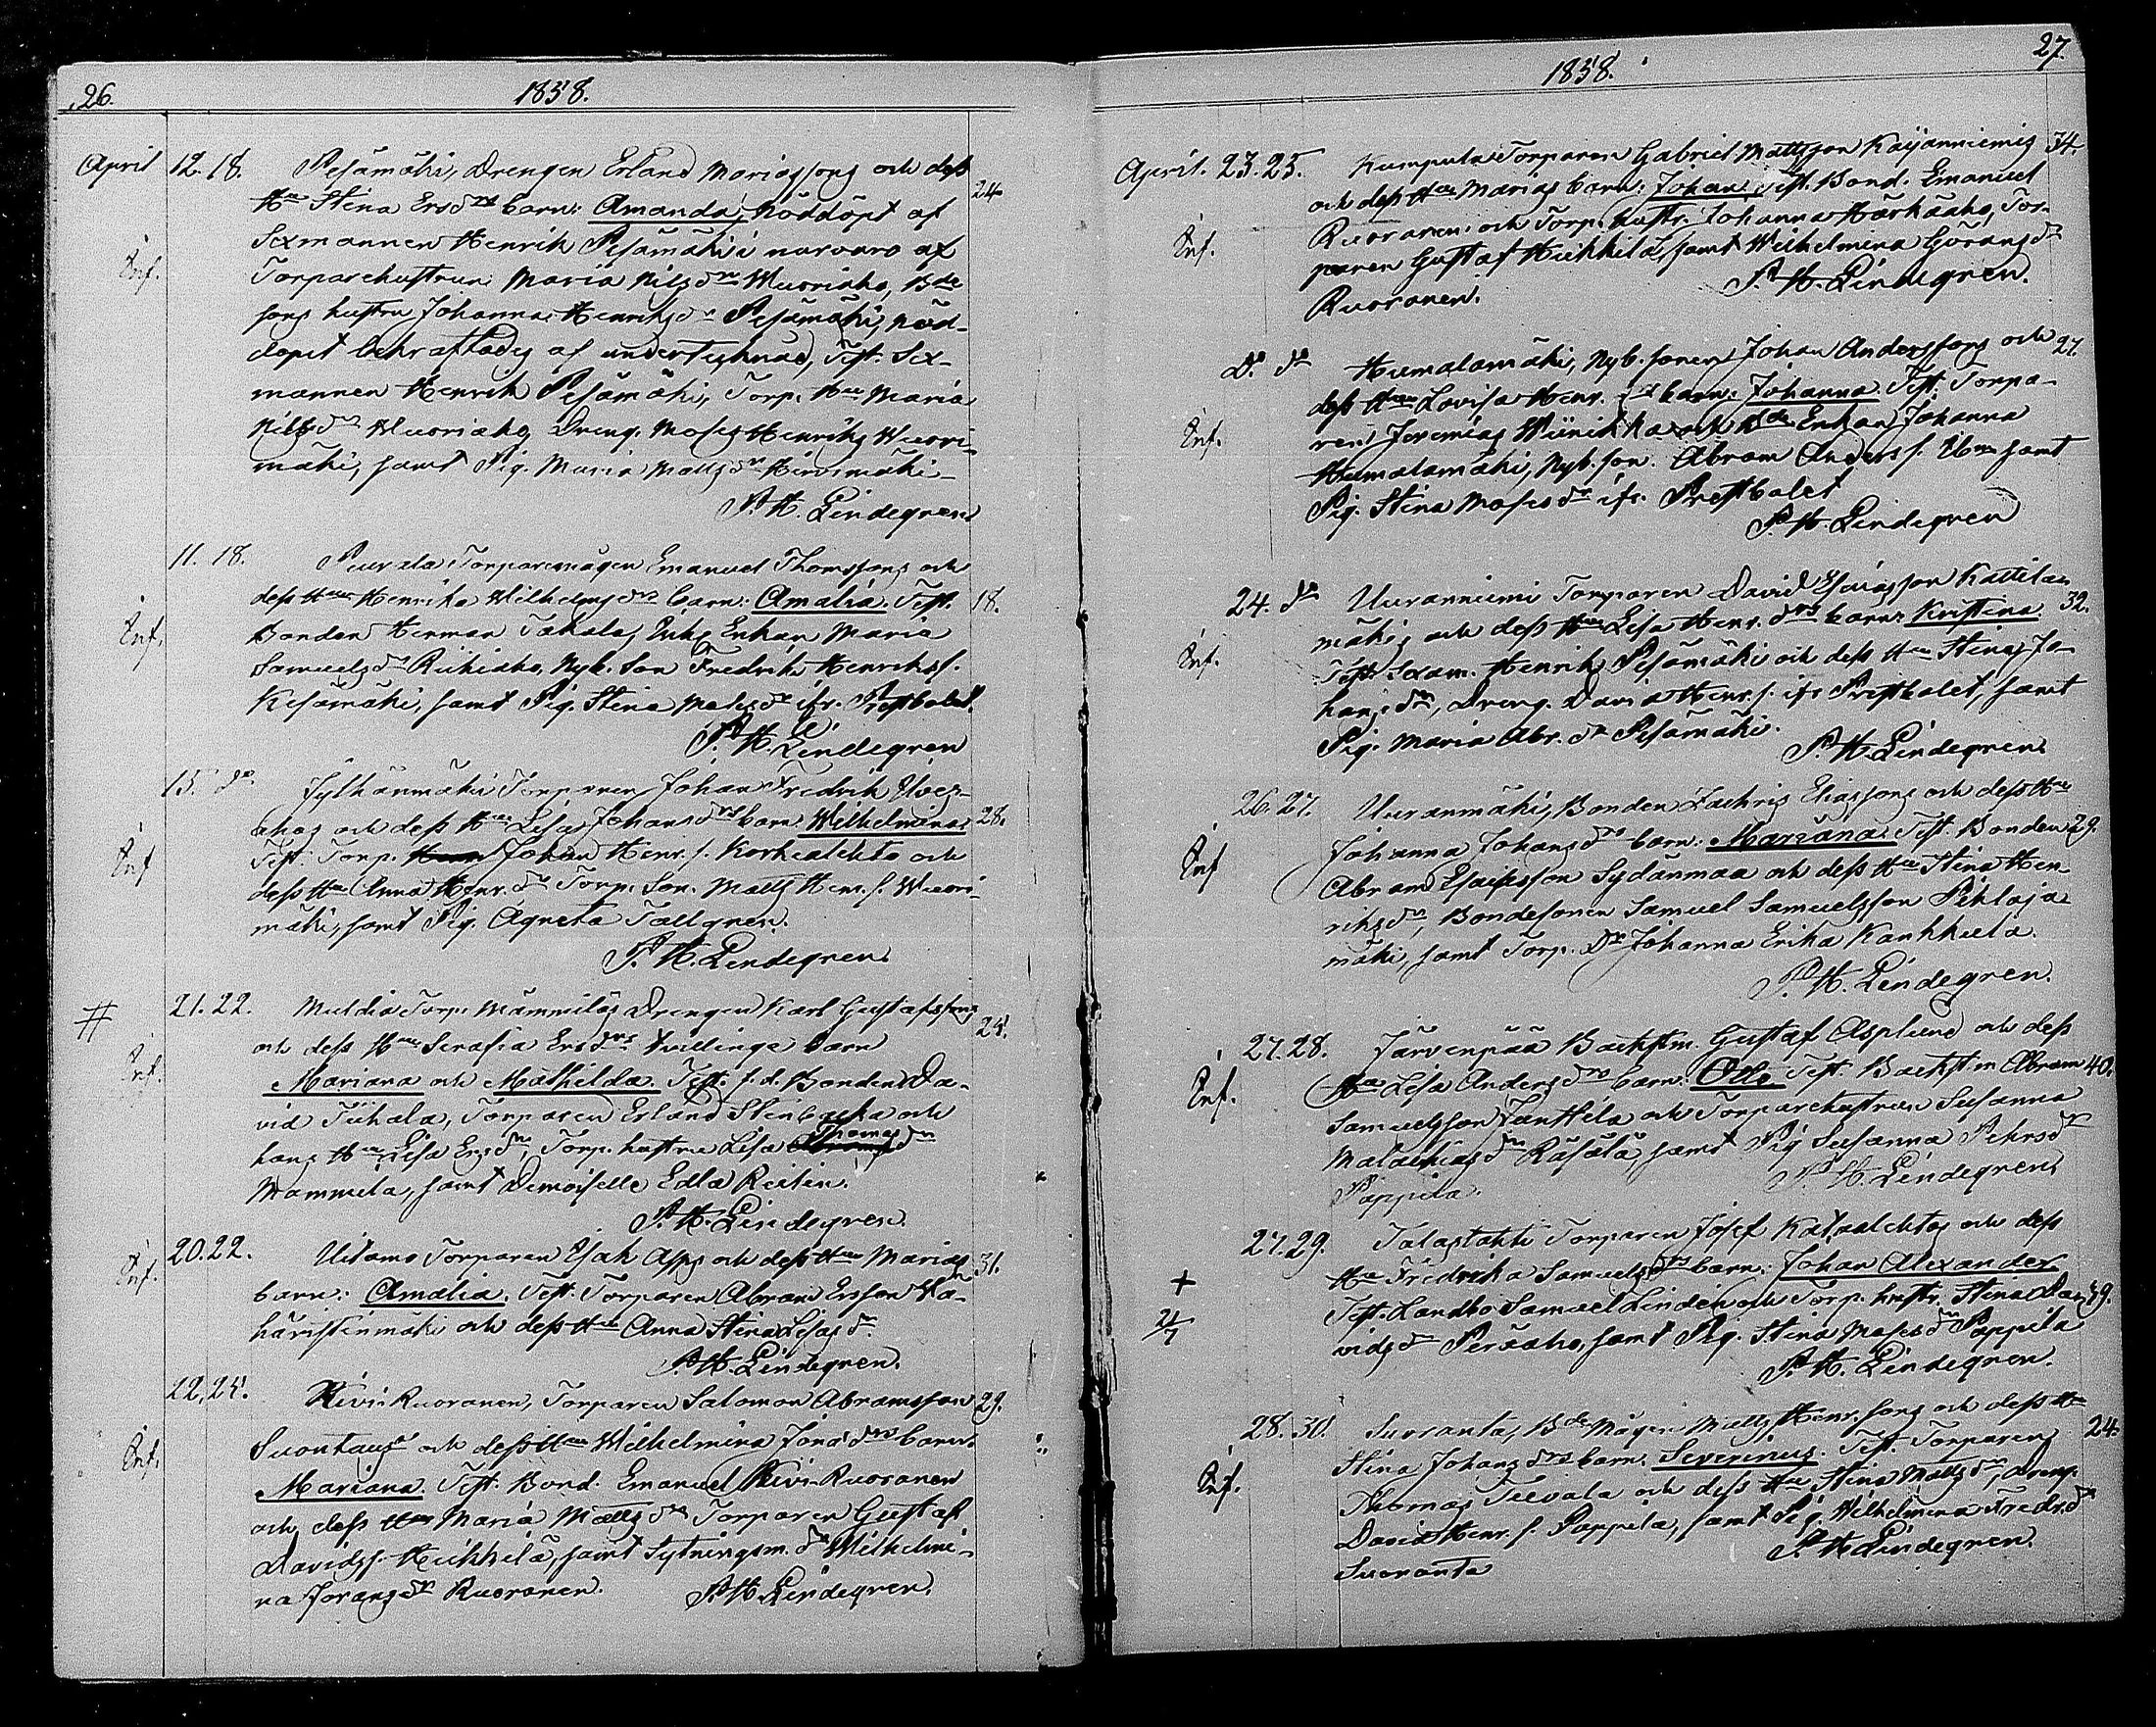 26. 1858.
April 12. 18. Pesämäki, Drengen Erland Mariasons och dess 24
Hu Stina Ersdrs barn: Amanda, nöddöpt af
Inf. Sexmannen Henrik Pesämäki i narvaro af
Torparehustrun Maria Nilsdr Wuoriaho, Bde
sons hustru Johanna Henriksdr Pesämäki, nöd-
döpet bekräftades af undertecknad, Test. Sex-
mannen Henrik Pesämäki, Torp. Hu Maria
Nilsdr Wuoriaho, Dreng. Moses Henriks Wuori-
mäki, samt Pig. Maria Mattsdr
P. H. Lindegren
11. 18. Torparemågen Emanuel Thomssons och
dess Hus Henrika Wilhelmsdrs barn: Amalia. Test. 18.
Inf. Bonden Herman Enkan Maria
Samuelsdr Riihiaho, Nyb. Son Fredrik Henrikss.
Kesämäki, samt Pig. Stina Mosesdr ifr. Prestbolet.
P. H. Lindegren
15. do Jylhänmäki Torparen Johan Fredrik
ahos och dess Hus Lisa Johansdrs barn Wilhelmina 28.
Inf Test: Torp. Johan Henr. s. Korkialehto och
dess Hu Anna Henr. dr Torp. Son. Matts Henr. s. Wuori-
mäki, samt Pig. Agneta Tallgren.
P. H. Lindegren
# 21. 22. Multia Torp. Mämmiläs Drengen Karl Gustafssons 25.
och dess Hus Serafia Ersdrs tvillinge barn
Inf. Mariana och Mathilda. Test. f. d. Bonden Da-
vid Tiihala, Torparen Erland Stenbacka och
hans Hu Lisa Ersdr, Torp. hustru Lisa Thomasdr
Mammila, samt Demoiselle Edla Reilin.
P. H. Lindegren
20. 22. Uitamo Torparen Esak Asps och dess Hus Marias 31.
Inf. barn: Amalia. Test: Torparen Abram Ersson Vä-
häristinmäki och dess Hu Anna Stina Lisasdr
P. H. Lindegren.
22. 24. Kivi-Ruoranen, Torparen Salomon Abramsson 29.
Suontaus och dess Hus Wilhelmina Jonædrs barn:
Inf. Mariana. Test. Bond. Emanuel Kivi-Ruoranen
och dess Hu Maria Mattsdr Torparen Gustaf
Davidss. Heikkilä, samt Sytningsm. dr Wilhelmi-
na Joransdr Ruoranen. P. H. Lindegren.
1858. 27.
April. 23. 25. Kumpula Torparen Gabriel Mattsson Kaijanniemis 34.
och dess Hus Marias barn: Johan, Test. Bond. Emanuel
Inf. Ruoranen och Torp. hustr. Johanna Tor-
paren Gustaf Heikkilä, samt Wilhelmina Göransdr
Ruoranen. P. H. Lindegren.
Do. do Humalamäki, Nyb. sonen Johan Anderssons och 27.
dess Hus Lovisa Henr. drs barn: Johanna. Test: Torpa-
Inf. ren Jeremias Wiinikka och Bde Enkan Johanna
Humalamäki, Nyb. son. Abram Anderss. samt
Pig. Stina Mosesdr ifr. Prestbolet
P. H. Lindegren
24. do Uuranniemi Torparen David Esaiasson Kattilan 32.
mäkis och dess Hus Lisa Henr. drs barn: Kristina.
Inf. Test: Sexm. Henrik Pesämäki och dess Hu Stina Jo-
hansdr, Dreng. David Henr. s. ifr Prestbolet, samt
Pig. Maria Abr. dr Pesämäki.
P. H. Lindegren.
26. 27. Uuranmäki, Bonden Zachris Eliassons och dess Hus
Johanna Johansdrs barn: Mariana. Test. Bonden 29.
Inf Abram Esaiasson Sydänmaa och dess Hu Stina Hen-
riksdr, Bondesonen Samuel Samuelsson Pihlaja-
mäki, samt Torp. Dr Johanna Erika Kankkula.
P. H. Lindegren.
27. 28. Järvenpää Backstm. Gustaf Asplund och dess
Hu Lisa Andersdrs barn: Otto Test Backstm Abram 40.
Inf. Samuelsson Janttila och Torparehustrun Susanna
Malachiasdr Räsälä, samt Pig Susanna Pehrsdr
Pappila. P. H. Lindegren
27. 29. Talastahti Torparen Josef Katalehtos och dess
+ Hu Fredrika Samuelsdrs barn: Johan Alexander
21/7 Test. Landbo Samuel Linden och Torp. hustr. Stina Da- 39.
vidsdr Peräaho, samt Pig. Stina Mosesdr Pappila
P. H. Lindegren.
28. 30. Suoranta, Bde Mågen Matts Henr. sons och dess Hu 24.
Stina Johansdrs barn: Severinus. Test. Torparen
Inf. Thomas Teevala och dess Hu Stina Mattsdr, Dreng.
David Henr. s. Pappila, samt Pig. Wilhelmina Fredr. dr
Suoranta P. H. Lindegren.